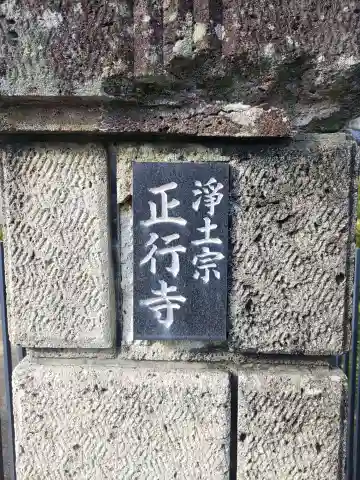 浄土宗
正行寺